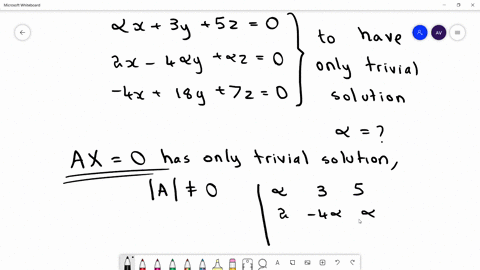 Microsoft Whiteboard
αx + 3y + 5z = 0
2x - 4αy + αz = 0
-4x + 18y + 7z = 0
to have
only trivial
solution
α = ?
AX = 0 has only trivial solution,
|A| ≠ 0
α 3 5
2 -4α α
AV